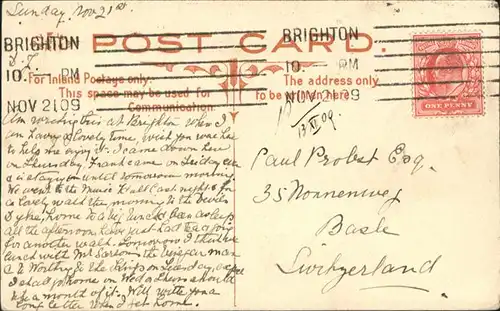 Sunday, Nov 21st.
BRIGHTON
10. PM
NOV 21 09
BRIGHTON
10. PM
NOV 21 09
POST CARD.
For Inland Postage only.
This space may be used for
Communication.
The address only
to be written here.
ONE PENNY
13.XI.09.
Am writing this at Brighton where I
am having a lovely time, wish you was here
to help me enjoy it. I came down here
on Thursday, Frank came on Saturday and
is staying on until tomorrow morning.
We went to the Music Hall last night & for
a lovely walk this morning to the Devils
Dyke, home to a big lunch, been asleep
all the afternoon, have just had tea & going
for another walk. Tomorrow I
lunch with Mr Sarson, the vinegar man
Worthy &
I shall go home on Wed or Thurs should
like a month of it. Will write you a
long letter when I get home.
Paul Probst Esq.
35 Nonnenweg
Basle
Switzerland.